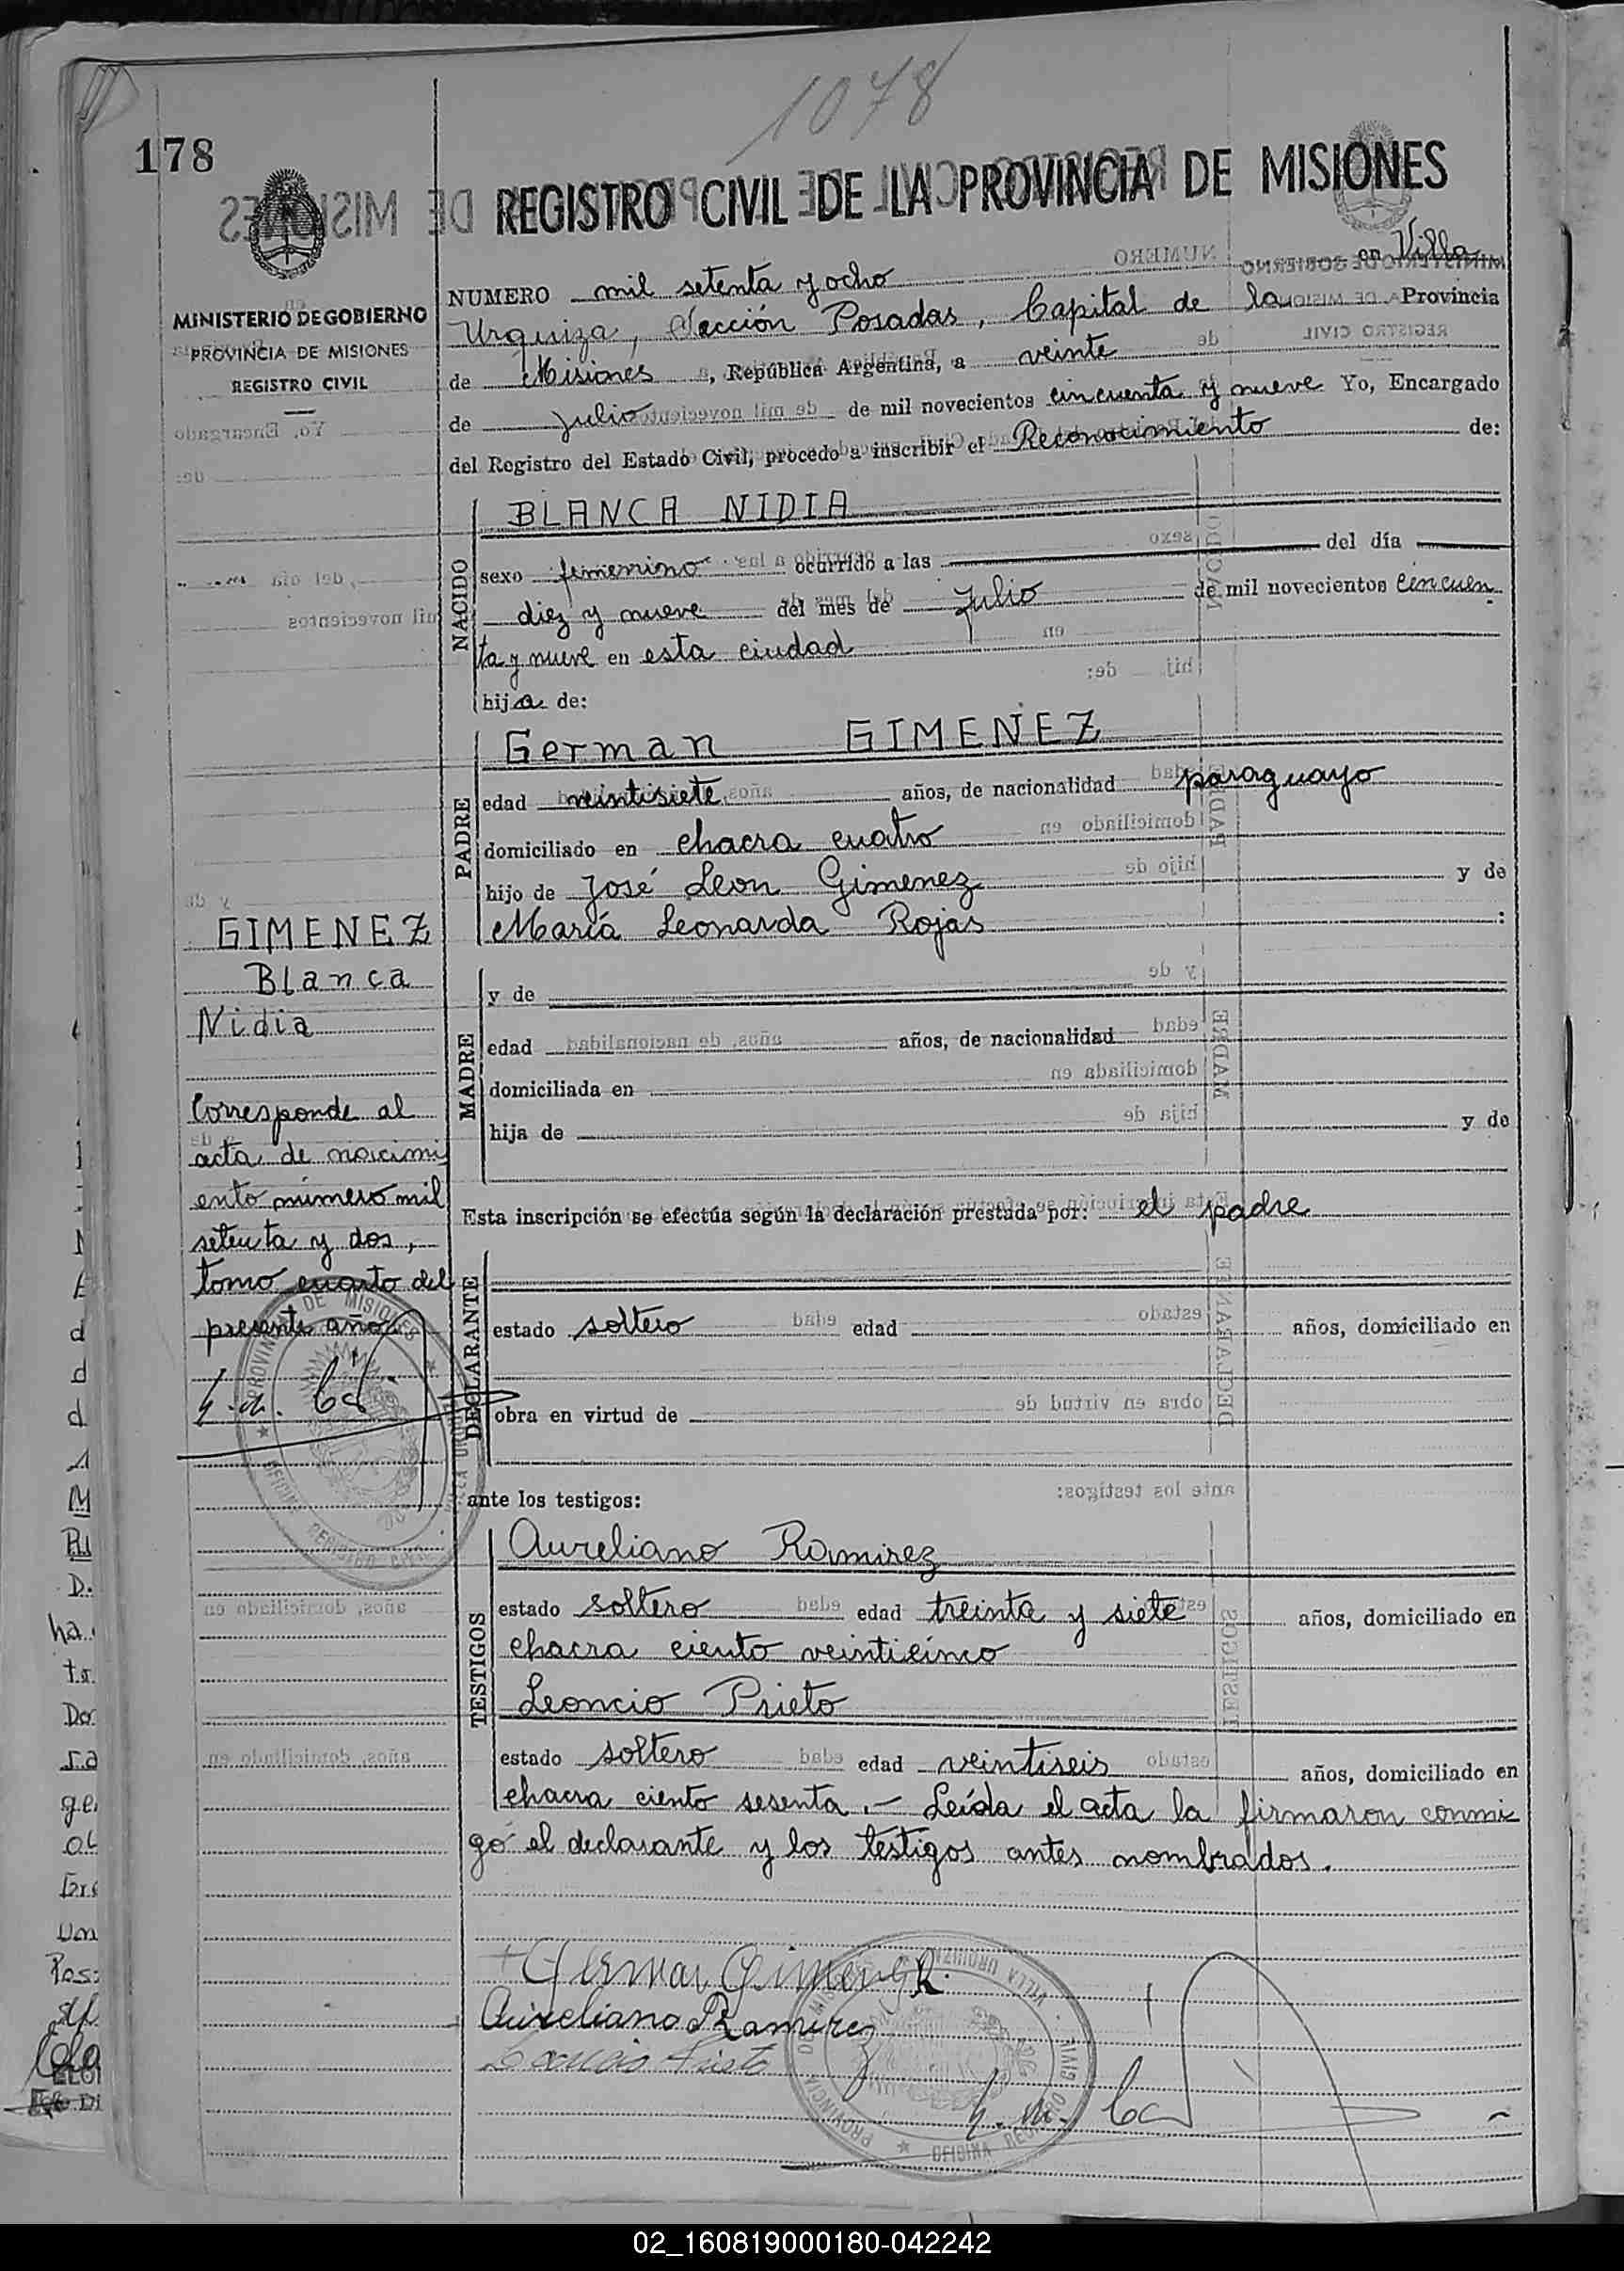 1078
178
REGISTRO CIVIL DE LA PROVINCIA DE MISIONES
MINISTERIO DE GOBIERNO
PROVINCIA DE MISIONES
REGISTRO CIVIL
NUMERO mil setenta y ocho en Villa
Urquiza, Sección Posadas, Capital de la Provincia
de Misiones, República Argentina, a veinte
de julio de mil novecientos cincuenta y nueve Yo, Encargado
del Registro del Estado Civil, procedo a inscribir el Reconocimiento de:
NACIDO
BLANCA NIDIA
sexo femenino ocurrido a las del día
diez y nueve del mes de Julio de mil novecientos cincuen
ta y nueve en esta ciudad
hija de:
PADRE
German GIMENEZ
edad veintisiete años, de nacionalidad paraguayo
domiciliado en chacra cuatro
hijo de José Leon Gimenez y de
María Leonarda Rojas :
MADRE
y de
edad años, de nacionalidad
domiciliada en
hija de y de
Esta inscripción se efectúa según la declaración prestada por: el padre
DECLARANTE
estado soltero edad años, domiciliado en
obra en virtud de
ante los testigos:
TESTIGOS
Aureliano Ramirez
estado soltero edad treinta y siete años, domiciliado en
chacra ciento veinticinco
Leoncio Prieto
estado soltero edad veintiseis años, domiciliado en
chacra ciento sesenta.- Leída el acta la firmaron conmi
go el declarante y los testigos antes nombrados.
German Gimenez R.
Aureliano Ramirez
Leoncio Prieto
GIMENEZ
Blanca
Nidia
Corresponde al
acta de nacimi
ento número mil
setenta y dos,
tomo cuarto del
presente año
02_160819000180-042242